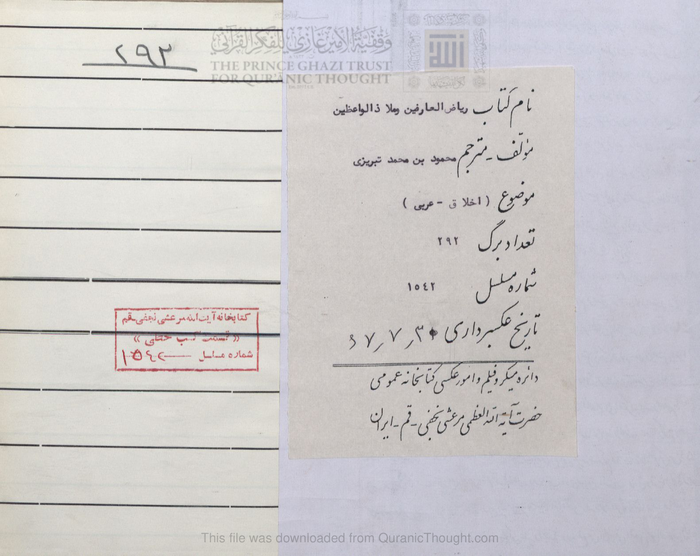 وقفية الأمير غازي للفكر القرآني
THE PRINCE GHAZI TRUST
FOR QUR'ANIC THOUGHT
الله
٢٩٣
نام کتاب ریاض العارفین وملا ذالواعظین
مؤلف - مترجم محمود بن محمد تبریزی
موضوع ( اخلاق - عربی )
تعداد برگ ٢٩٢
شماره مسلسل ١٥٤٢
تاریخ عکسبرداری ٦٧٫٧٫٣٠
دائره میکروفیلم و امور عکسی کتابخانه عمومی
حضرت آیة الله العظمی مرعشی نجفی - قم - ایران
کتابخانه آیت الله مرعشی نجفی - قم
شماره مسلسل ١٥٤٢
This file was downloaded from QuranicThought.com